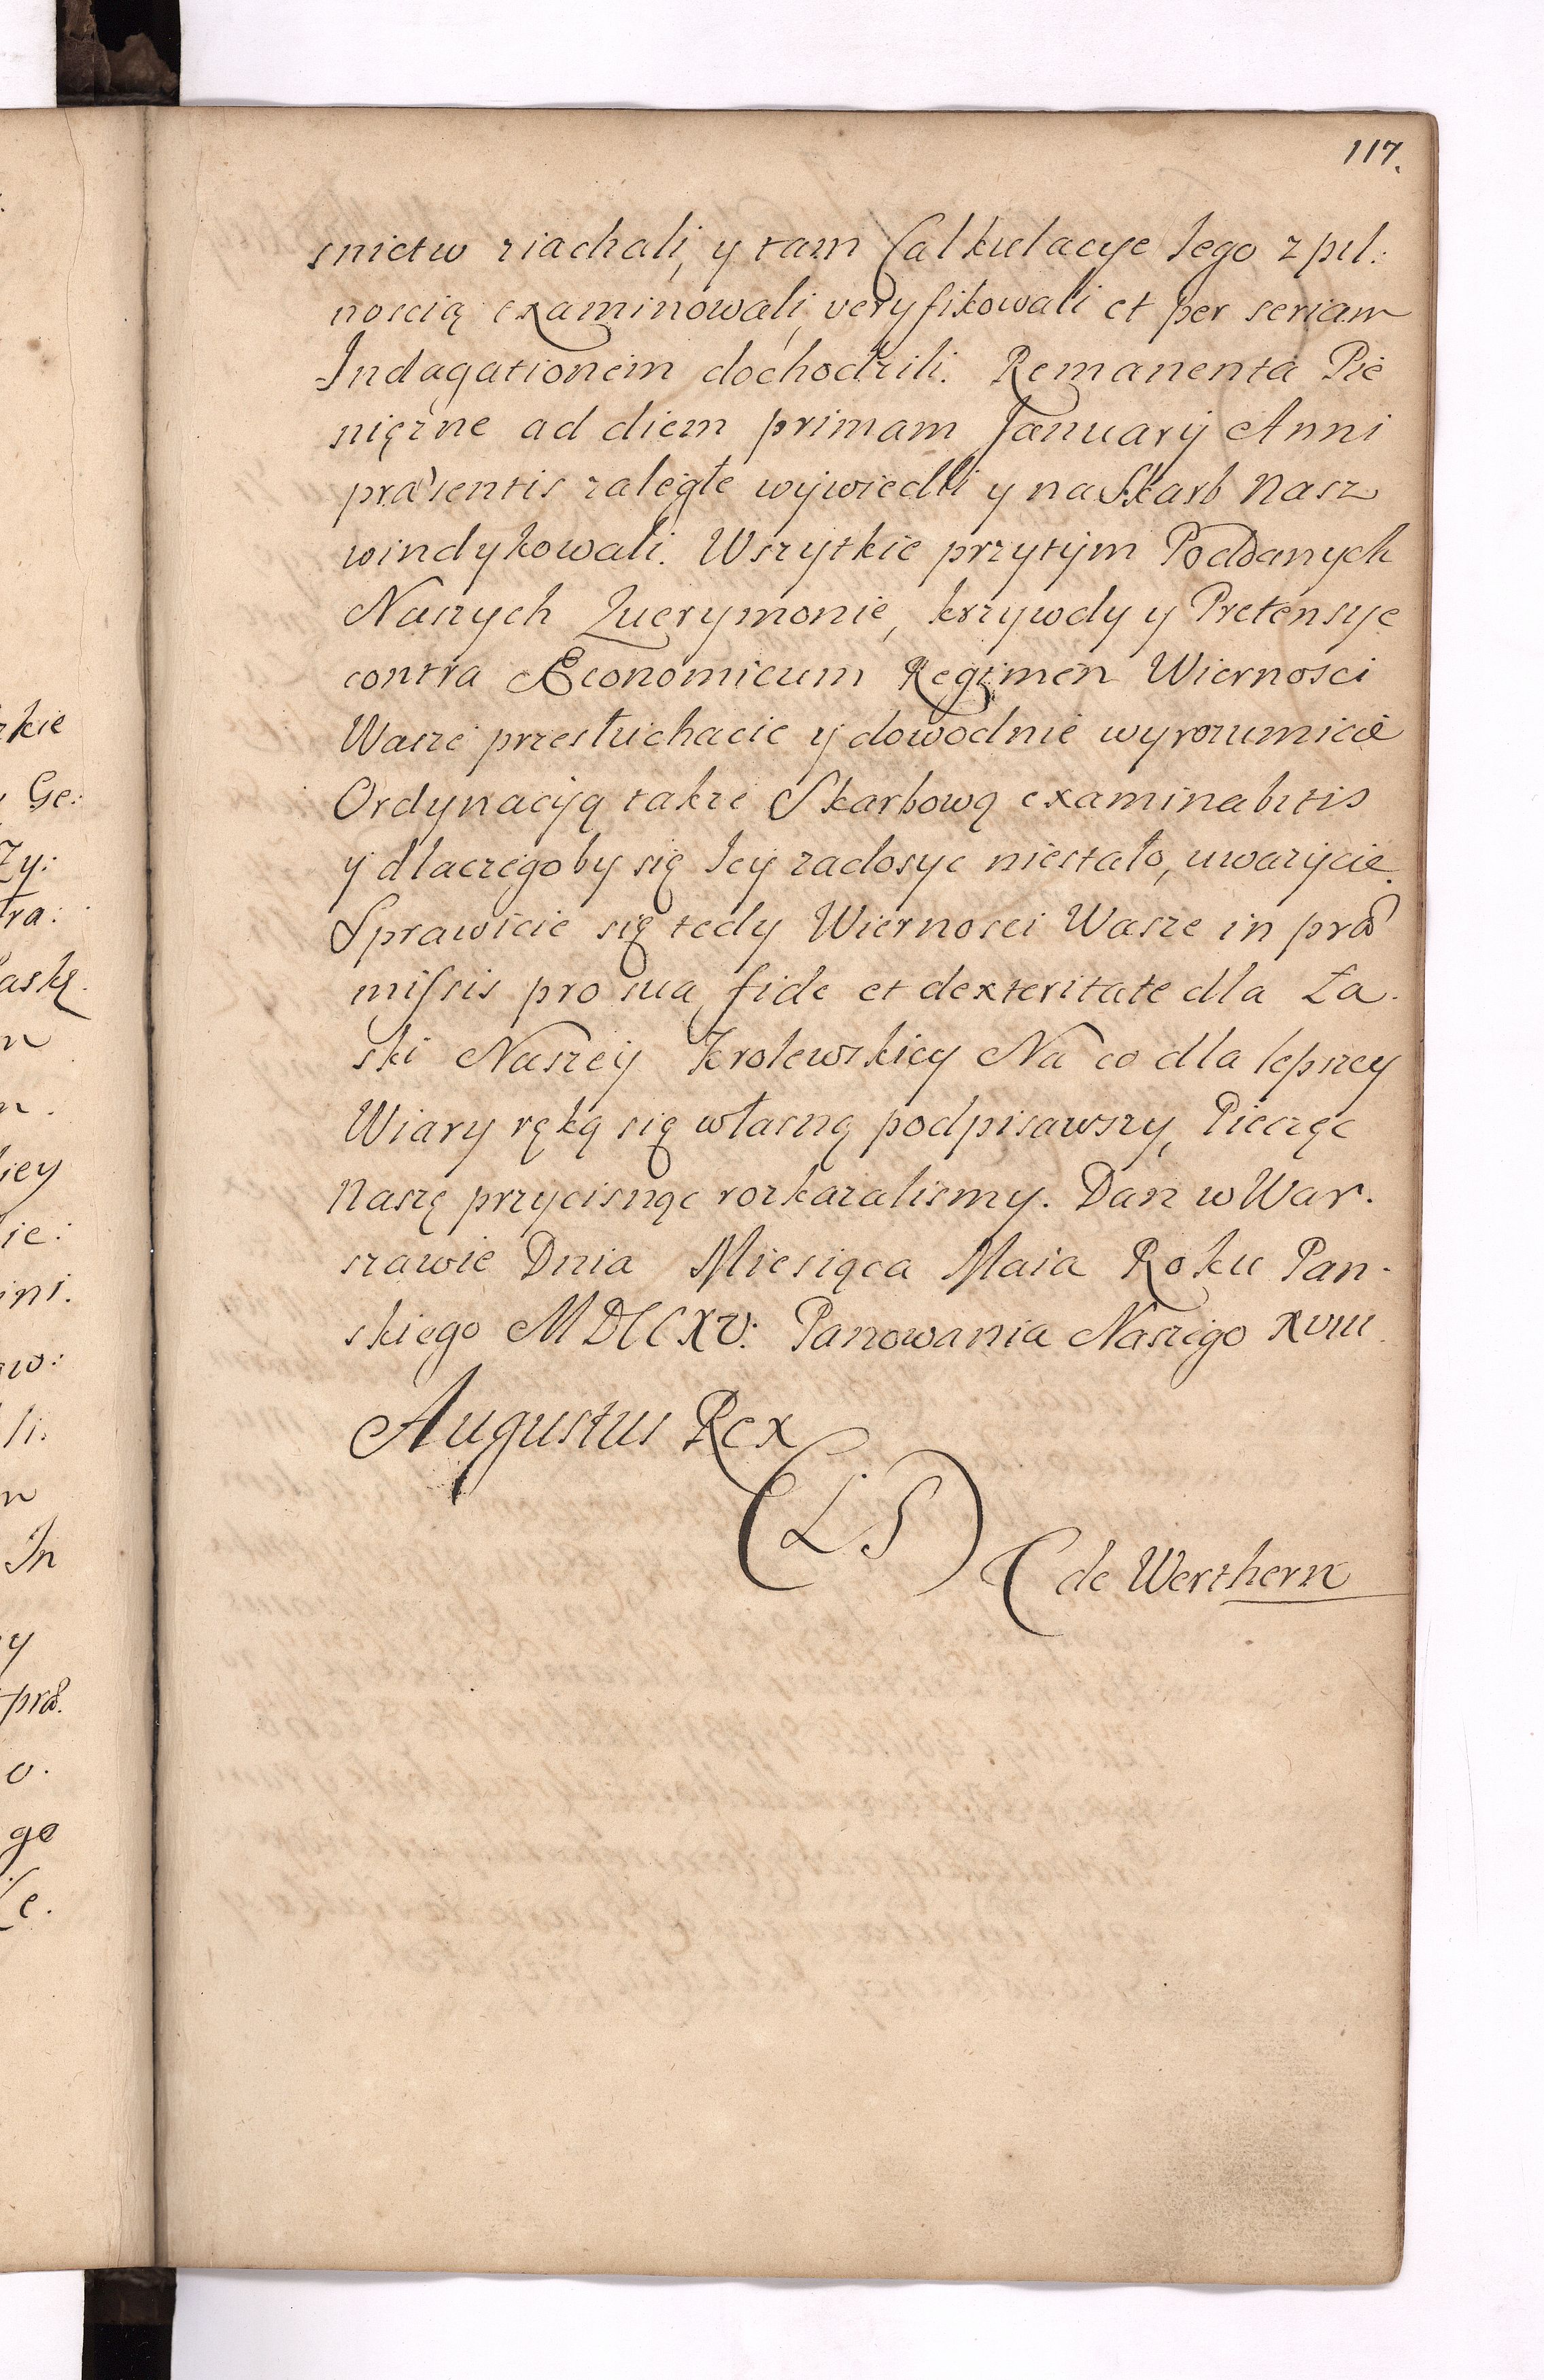 117.
snictw ziachali, y tam Calkulacye Iego z pil:
noscią examinowali, veryfikowali et per seriam
Indagationem dochodzili. Remanenta Pie
niężne ad diem primam Januarij Anni
præsentis zaległe wywiedli y na Skarb Nasz
windykowali. Wszytkie przytym Poddanych
Naszych Querymonie, krzywdy y Pretensye
contra Œconomicum Regimen Wiernosci
Wasze przesłuchacie y dowodnie wyrozumiecie
Ordynacyją także Skarbową examinabitis
y dlaczegoby się Iey zadosyc niestało, uwazycie.
Sprawicie się tedy Wiernosci Wasze in præ
missis pro sua fide et dexteritate dla Ła.
ski Naszey Krolewskiey Na co dla lepszey
Wiary ręką się własną podpisawszy, Pieczęc
Naszę przycisnąc rozkazalismy. Dan w War.
szawie Dnia Miesiąca Maia Roku Pan-
skiego MDCCXV: Panowania Naszego XVIII.
Augustus Rex
(L S)
C de Werthern
rkie
Ge:
Zy:
tra:
askę.
n
iey
ie:
ini.
w:
li.
n
In
y
præ.
o.
go
Le.